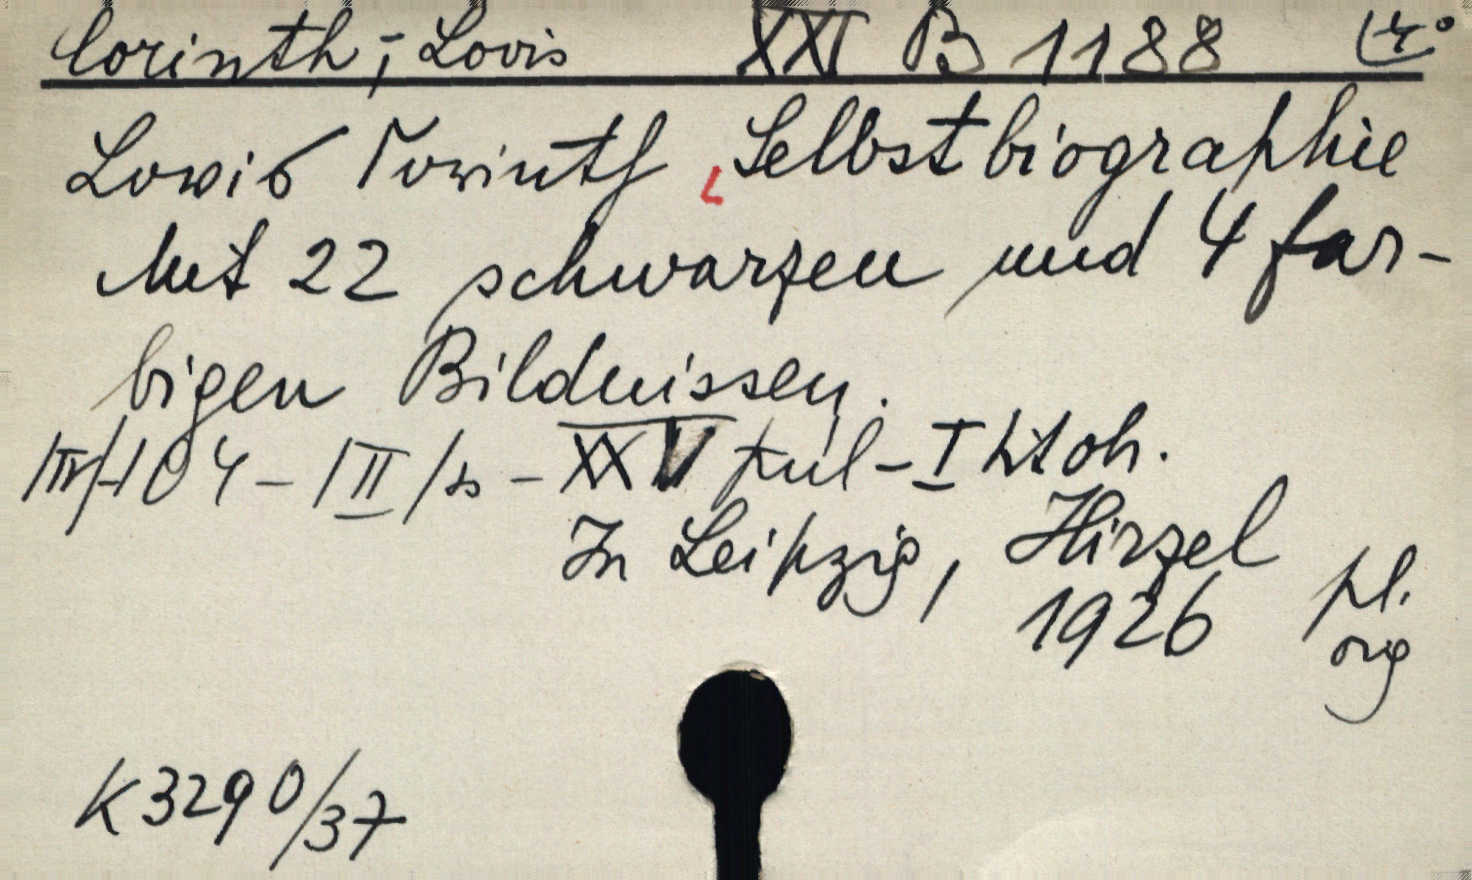 Corinth, Lovis XXI B 1188 4°
Lovis Corinth Selbstbiographie
Mit 22 schwarzen und 4 far-
bigen Bildnissen.
III/104 - III/s - XXV ful - I htoh.
In Leipzig, Hirzel
1926 pl.
org
K 3290/37